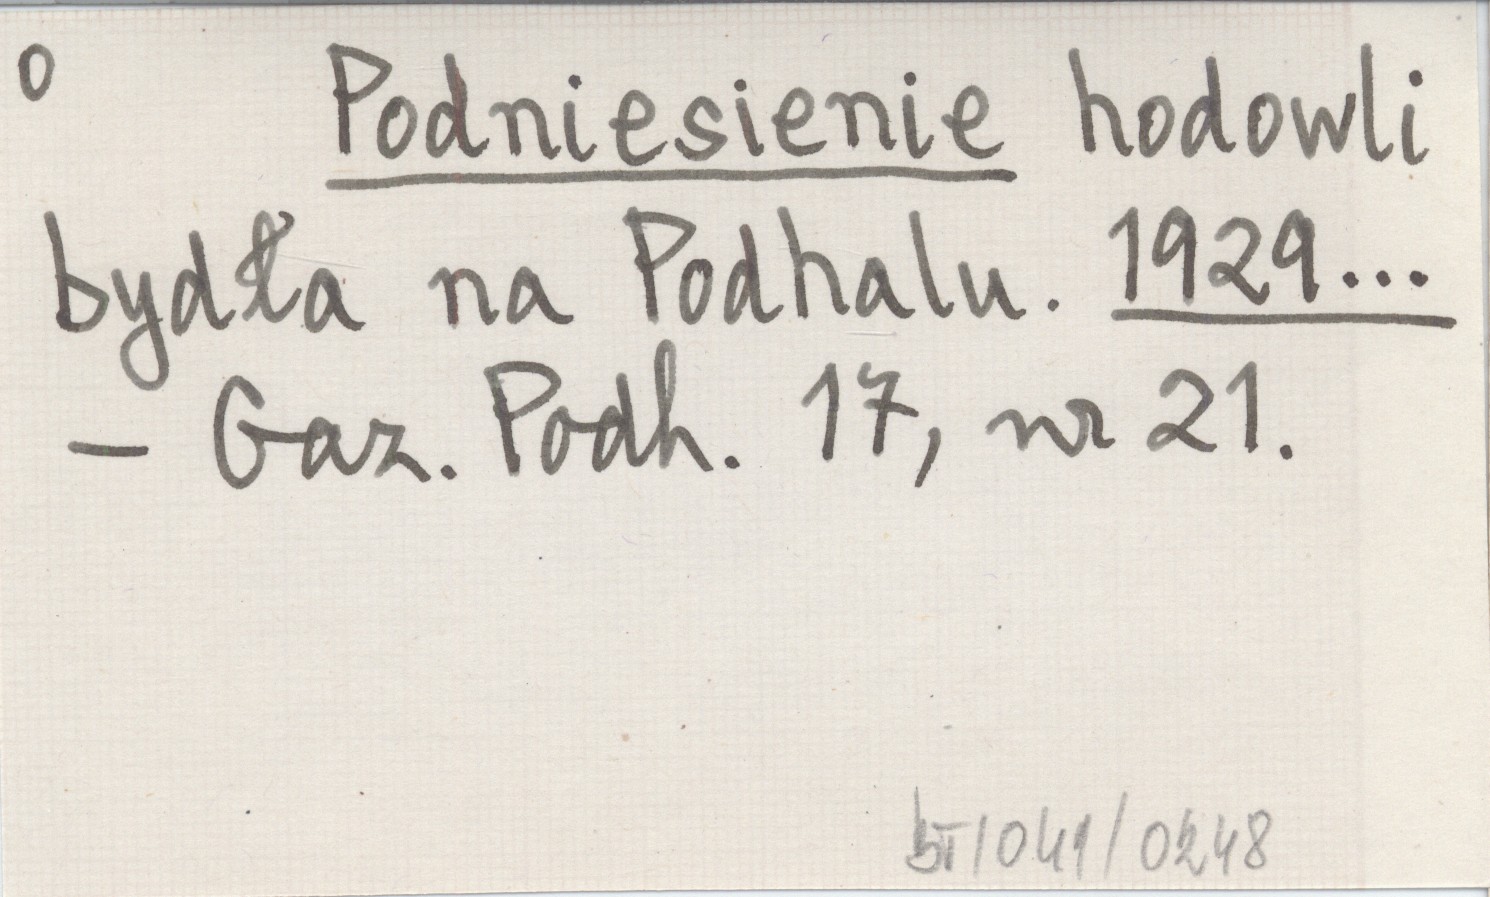 o Podniesienie hodowli
bydła na Podhalu. 1929...
- Gaz. Podh. 17, nr 21.
/041/0248